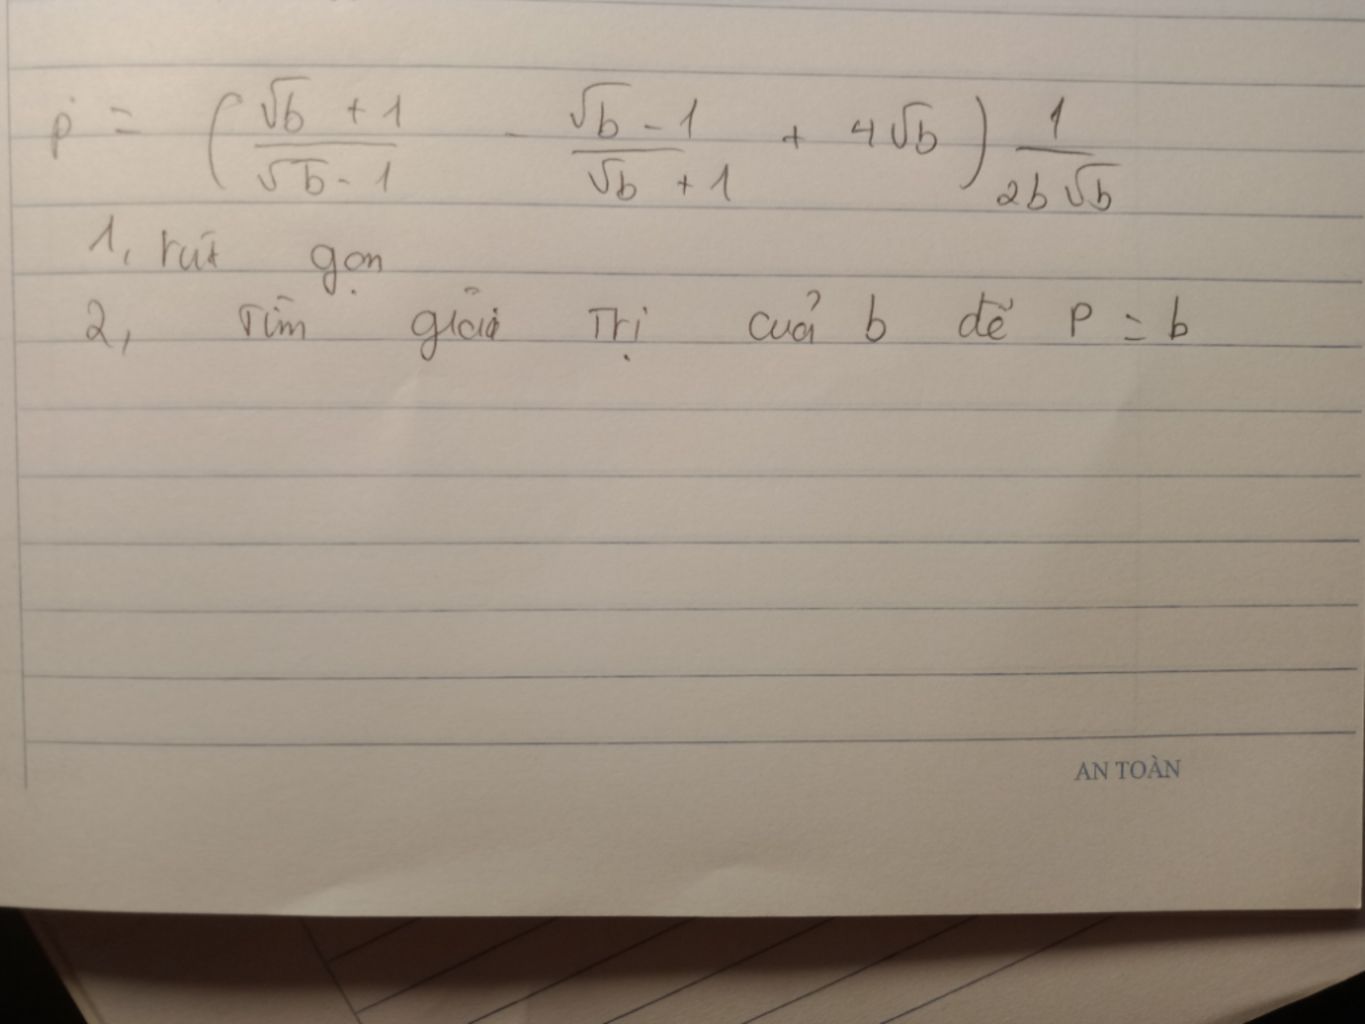 P = ( (√b + 1)/(√b - 1) - (√b - 1)/(√b + 1) + 4√b ) 1/(2b√b)
1, rút gọn
2, Tìm giải Trị cuả b để P = b
AN TOÀN